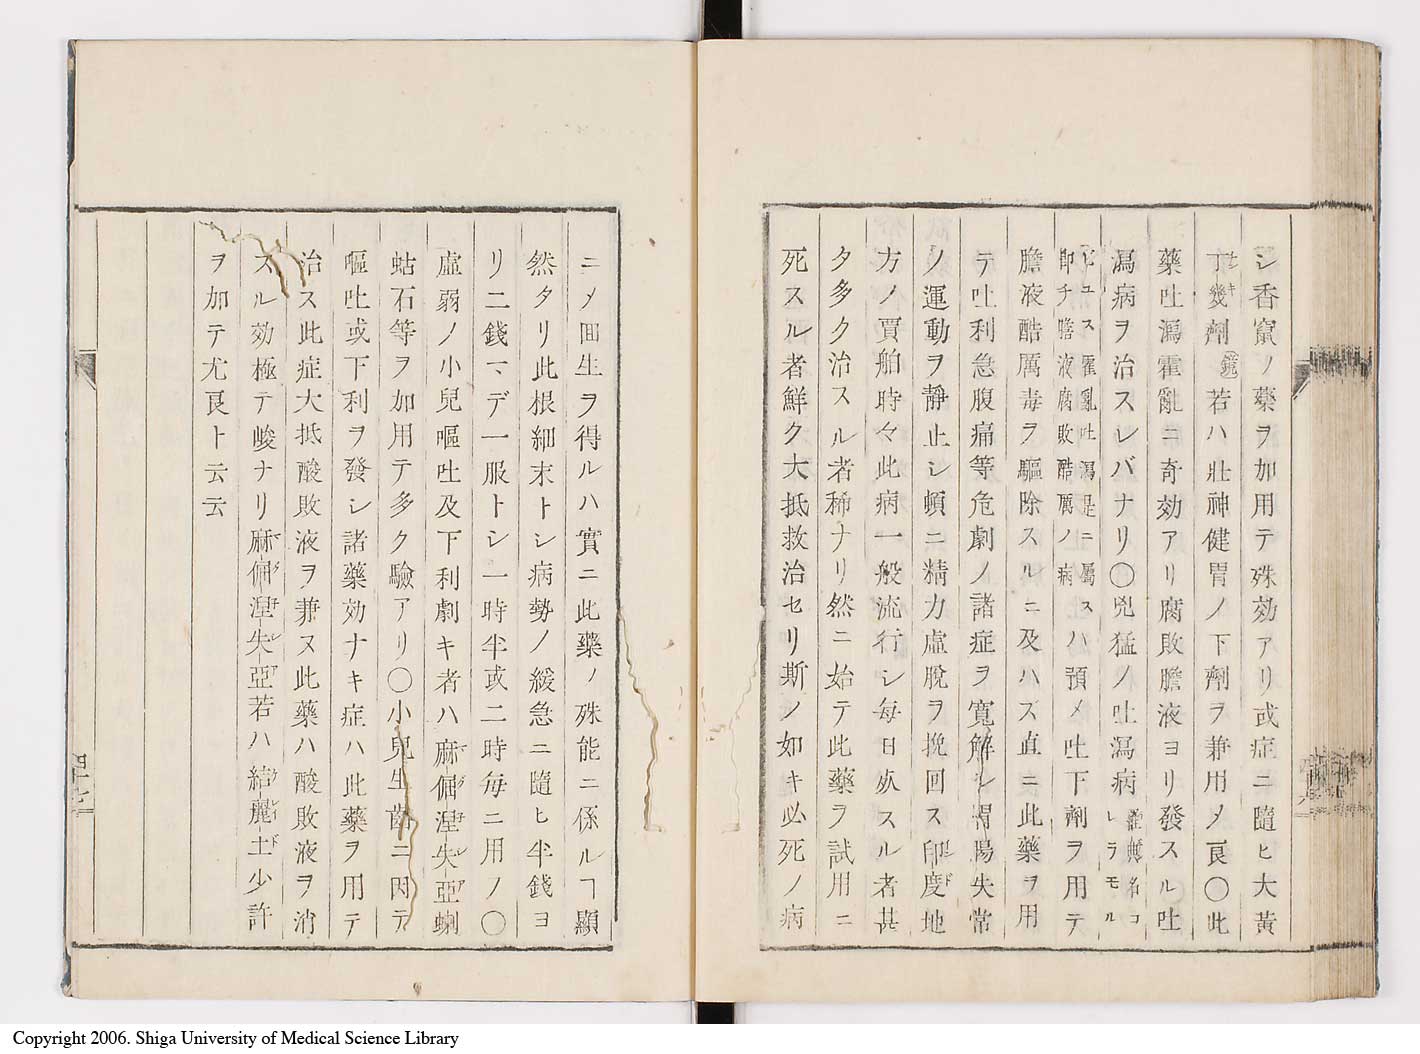 シ香竄ノ藥ヲ加用テ殊効アリ或症ニ隨ヒ大黃
丁幾劑 若ハ壯神健胃ノ下劑ヲ兼用メ良〇此
藥吐瀉霍亂ニ奇効アリ腐敗膽液ヨリ發スル吐
瀉病ヲ治スレバナリ〇兇猛ノ吐瀉病 羅甸名コレラモル
ビユス霍亂吐瀉是ニ屬ス
即チ膽液腐敗酷厲ノ病 ハ預メ吐下劑ヲ用テ
膽液酷厲毒ヲ驅除スルニ及ハズ直ニ此藥ヲ用
テ吐利急腹痛等危劇ノ諸症ヲ寬解シ胃腸失常
ノ運動ヲ靜止シ頓ニ精力虛脫ヲ挽回ス印度地
方ノ賈舶時々此病一般流行シ每日死スル者甚
タ多ク治スル者稀ナリ然ニ始テ此藥ヲ試用ニ
死スル者鮮ク大抵救治セリ斯ノ如キ必死ノ病
ニメ回生ヲ得ルハ實ニ此藥ノ殊能ニ係ルヿ顯
然タリ此根細末トシ病勢ノ緩急ニ隨ヒ半錢ヨ
リ二錢マデ一服トシ一時半或二時每ニ用ノ〇
虛弱ノ小兒嘔吐及下利劇キ者ハ麻倔涅失亞蝲
蛄石等ヲ加用テ多ク驗アリ〇小兒生齒ニ因テ
嘔吐或下利ヲ發シ諸藥効ナキ症ハ此藥ヲ用テ
治ス此症大抵酸敗液ヲ兼ヌ此藥ハ酸敗液ヲ消
スル効極テ峻ナリ麻倔涅失亞若ハ結麗土少許
ヲ加テ尤良ト云云
四十七
Copyright 2006. Shiga University of Medical Science Library